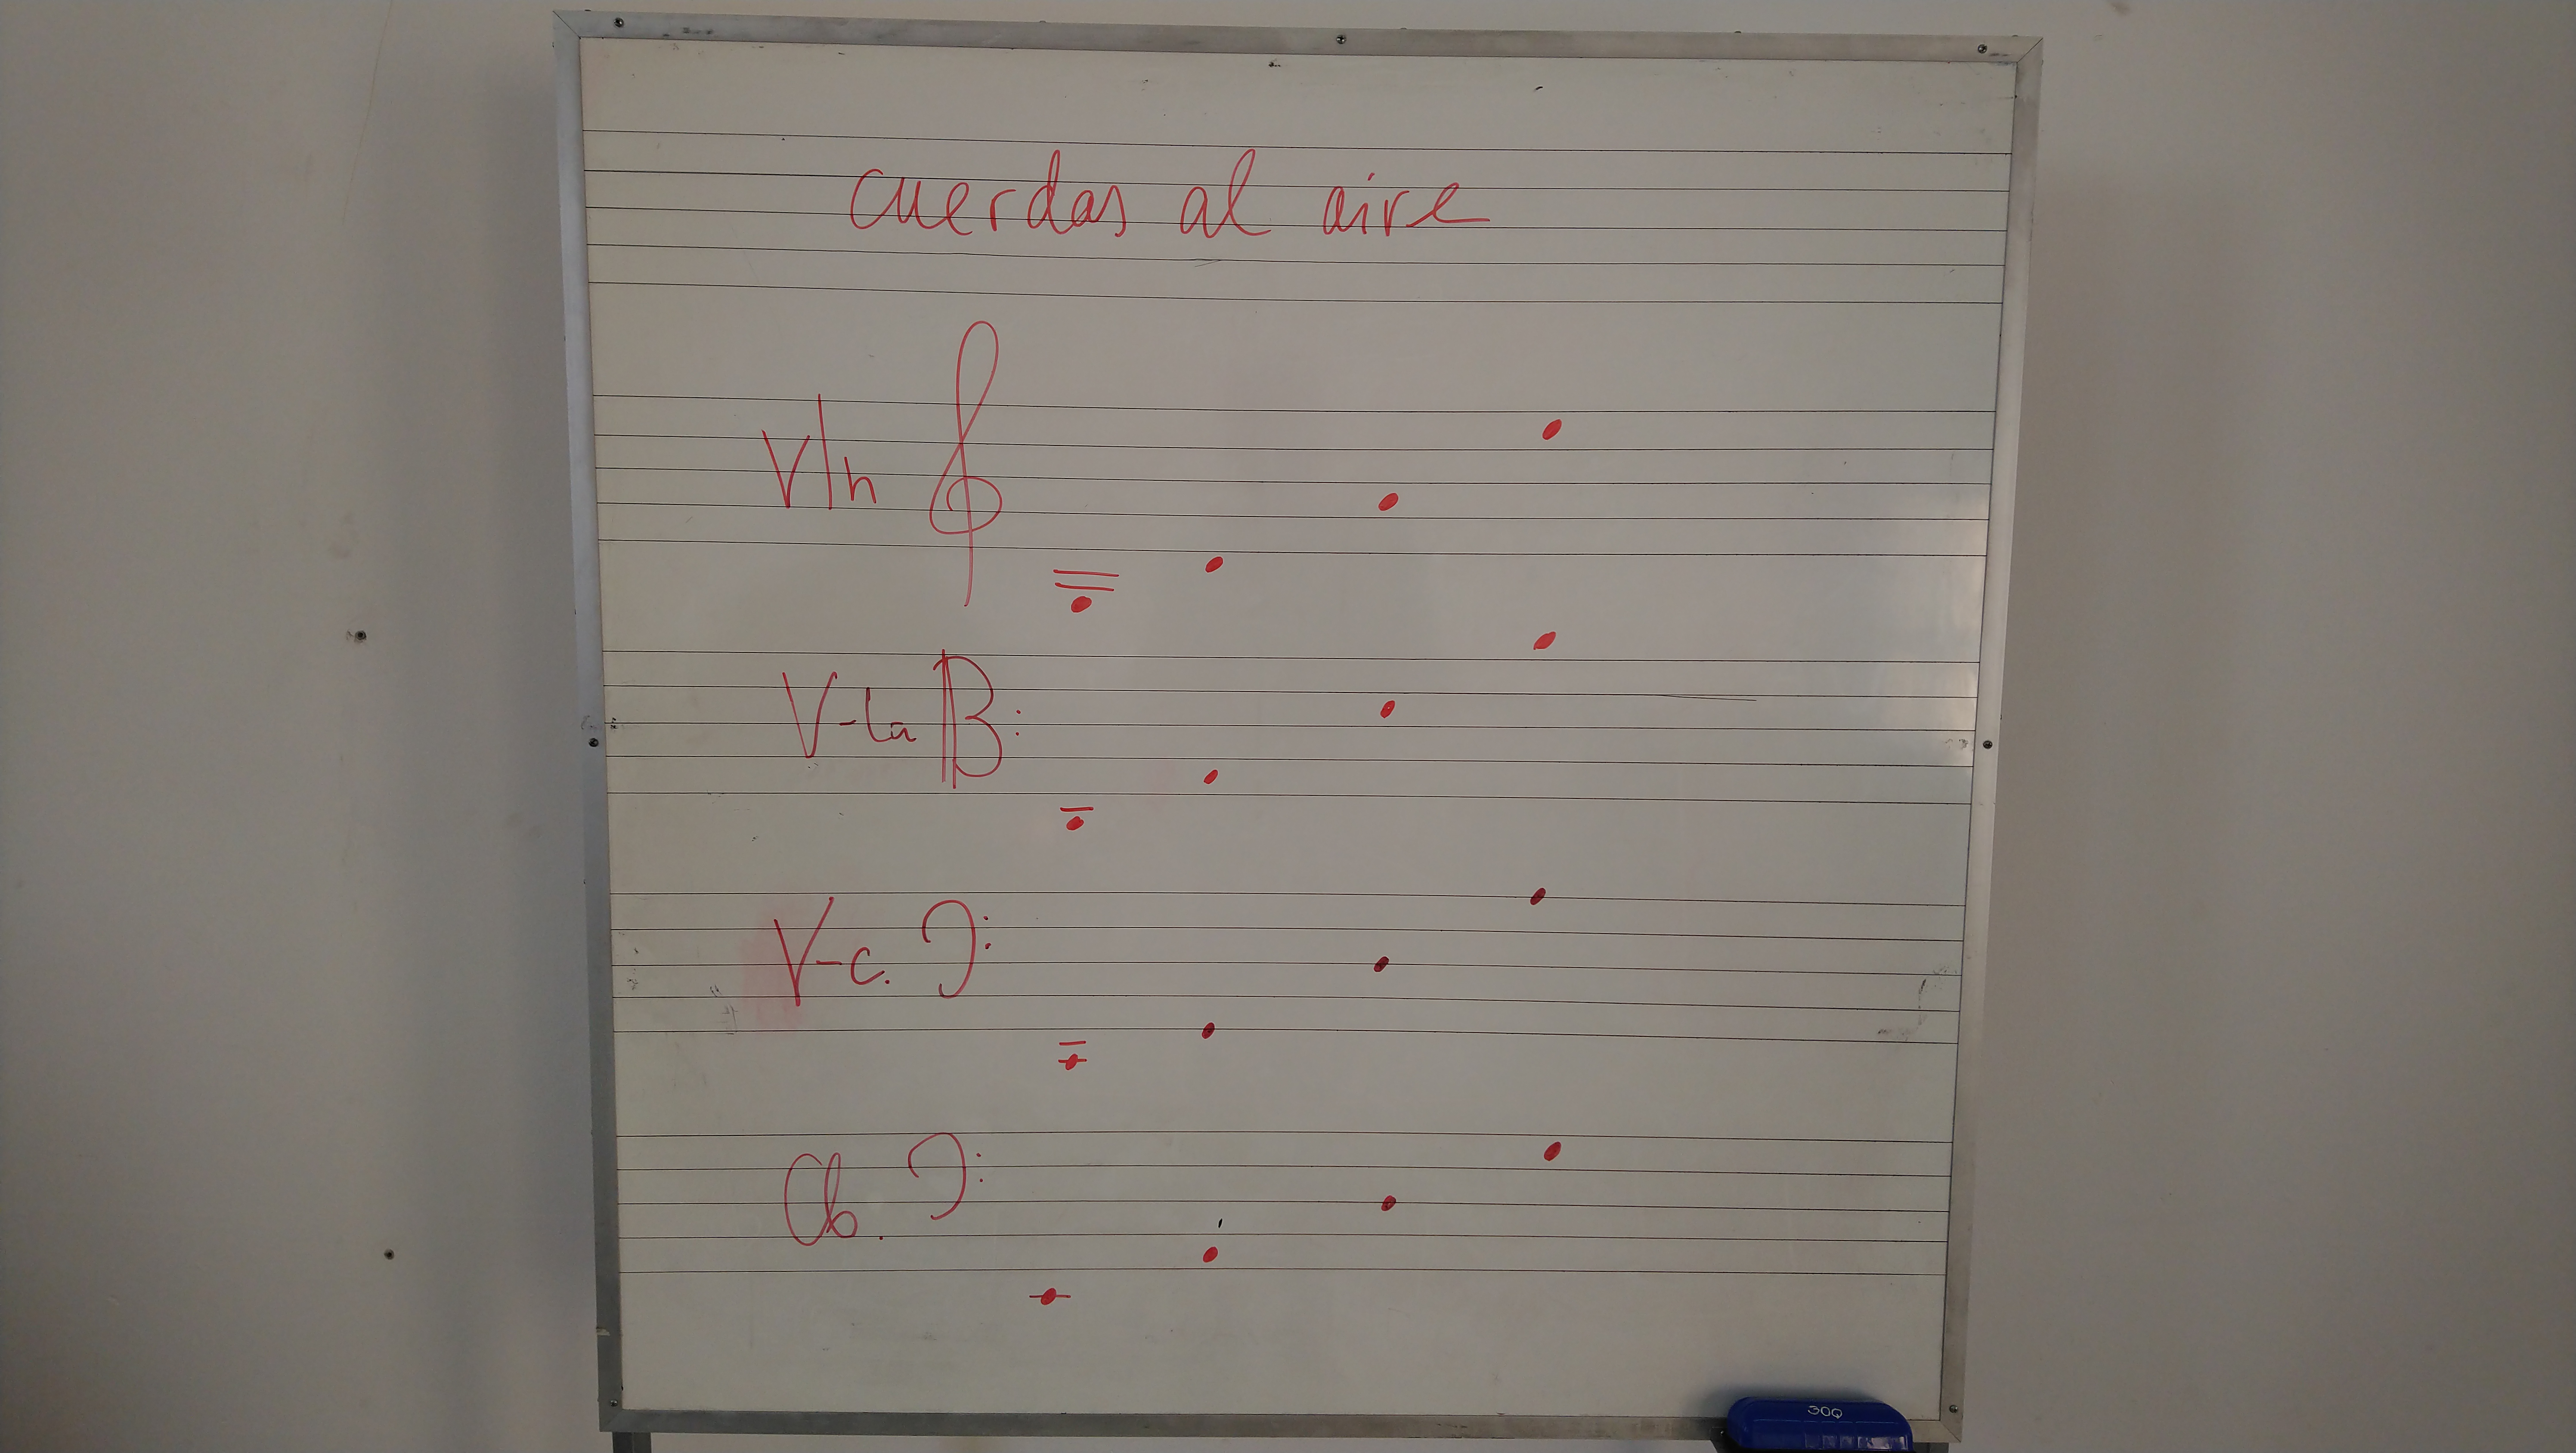 cuerdas al aire
Vln
V-la
V-c.
Cb.
30Q